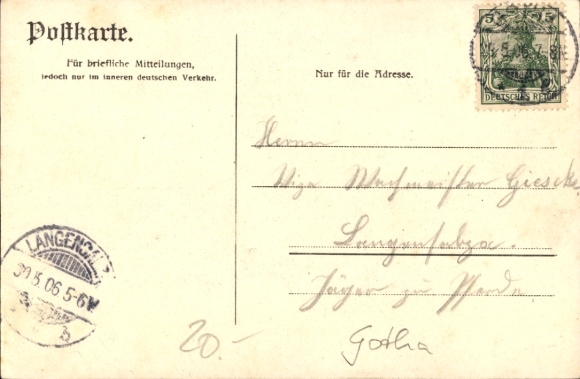 Postkarte.
Für briefliche Mitteilungen,
jedoch nur im inneren deutschen Verkehr.
Nur für die Adresse.
5 5
DEUTSCHES REICH
Herrn
Vize Wachmeister Giescke
Langensalza.
Jäger zu Pferde.
LANGENSALZ
30.5.06 5-6N
b
20.-
Gotha